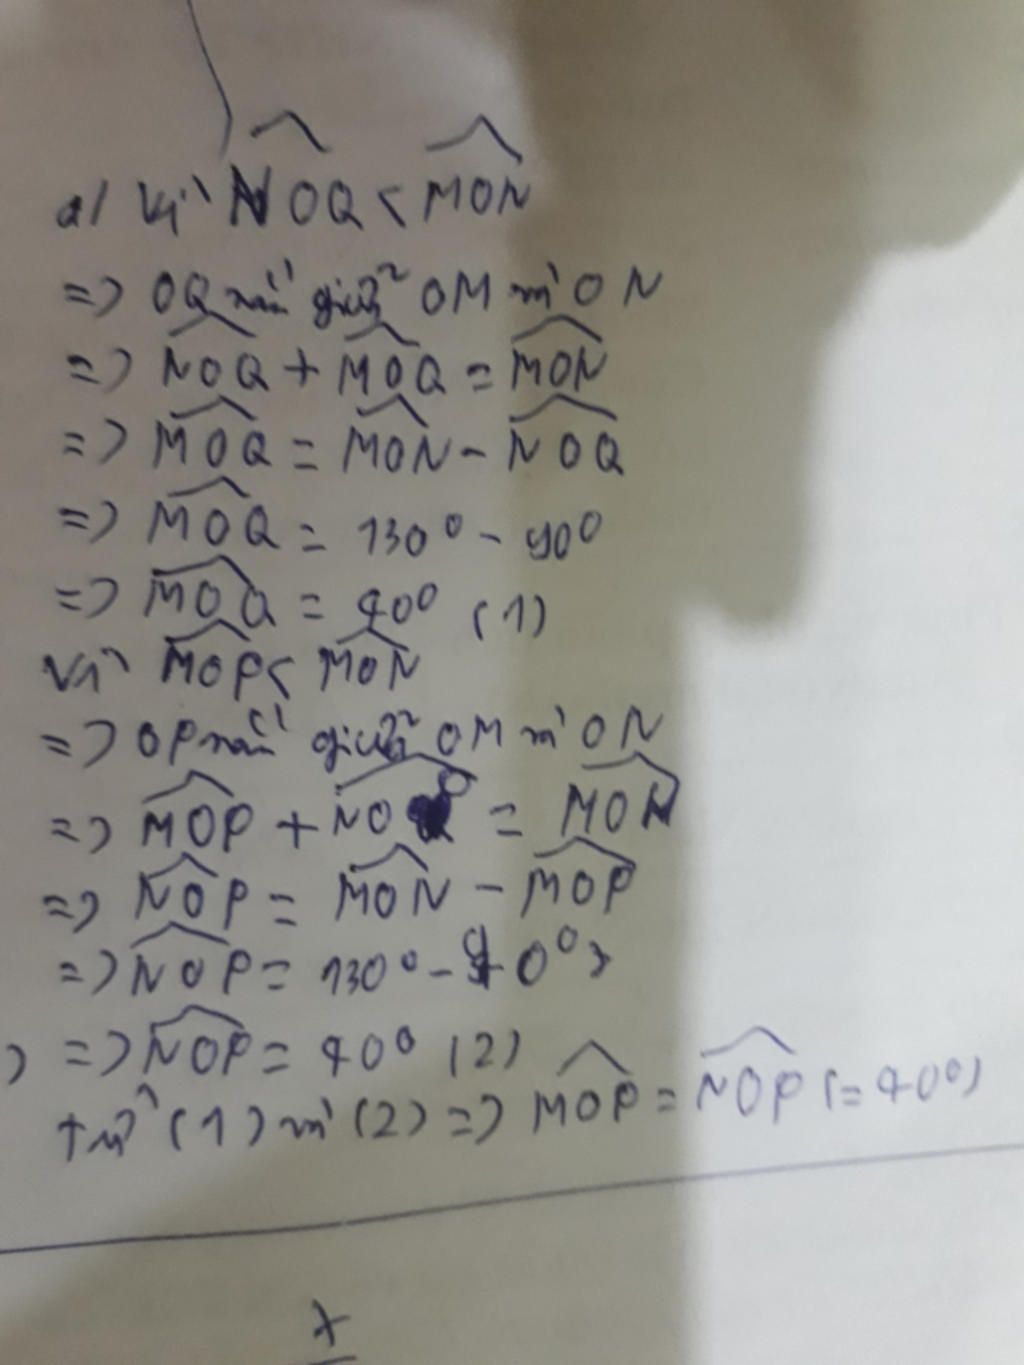 a/ Vì NOQ < MON
=> OQ nằm giữa OM và ON
=> NOQ + MOQ = MON
=> MOQ = MON - NOQ
=> MOQ = 130° - 90°
=> MOQ = 40° (1)
Vì MOP < MON
=> OP nằm giữa OM và ON
=> MOP + NOP = MON
=> NOP = MON - MOP
=> NOP = 130° - 90°
=> NOP = 40° (2)
từ (1) và (2) => MOP = NOP (= 40°)
x